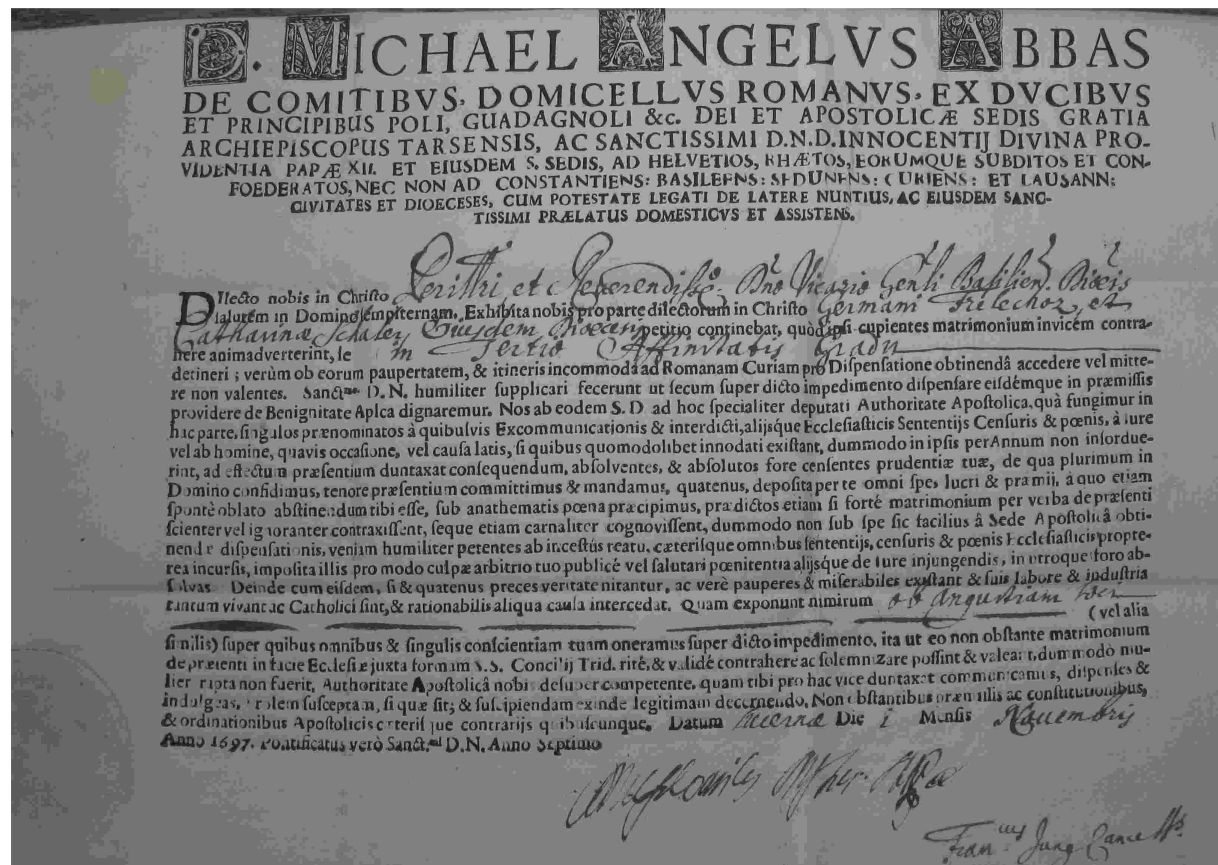 D. MICHAEL ANGELVS ABBAS
DE COMITIBVS, DOMICELLVS ROMANVS, EX DVCIBVS
ET PRINCIPIBUS POLI, GUADAGNOLI &c. DEI ET APOSTOLICÆ SEDIS GRATIA
ARCHIEPISCOPUS TARSENSIS, AC SANCTISSIMI D.N.D. INNOCENTIJ DIVINA PRO-
VIDENTIA PAPÆ XII. ET EIUSDEM S. SEDIS, AD HELVETIOS, RHÆTOS, EORUMQUE SUBDITOS ET CON-
FOEDERATOS, NEC NON AD CONSTANTIENS: BASILEENS: SEDUNENS: CURIENS: ET LAUSANN:
CIVITATES ET DIOECESES, CUM POTESTATE LEGATI DE LATERE NUNTIUS, AC EIUSDEM SANC-
TISSIMI PRÆLATUS DOMESTICVS ET ASSISTENS.
DIlecto nobis in Christo Perillri et Reverendissº Dño Vicario Genli Basilien. Diœcis
salutem in Domino sempiternam. Exhibita nobis pro parte dilectorum in Christo Germani et
Catharinæ Schaler Eiusdem Diœcesis petitio continebat, quòd ipsi cupientes matrimonium invicem contra-
here animadverterint, se in Tertio Affinitatis Gradu
detineri; verùm ob eorum paupertatem, & itineris incommoda ad Romanam Curiam pro Dispensatione obtinendâ accedere vel mitte-
re non valentes. Sanctmo D.N. humiliter supplicari fecerunt ut secum super dicto impedimento dispensare eisdémque in præmissis
providere de Benignitate Aplca dignaremur. Nos ab eodem S. D. ad hoc specialiter deputati Authoritate Apostolica, quâ fungimur in
hac parte, singulos prænominatos à quibusvis Excommunicationis & interdicti, alijsque Ecclesiasticis Sententijs Censuris & pœnis, à iure
vel ab homine, quavis occasione, vel causa latis, si quibus quomodolibet innodati existant, dummodo in ipsis per Annum non insordue-
rint, ad effectum præsentium duntaxat consequendum, absolventes, & absolutos fore censentes prudentiæ tuæ, de qua plurimum in
Domino confidimus, tenore præsentium committimus & mandamus, quatenus, deposita per te omni spe, lucri & præmij, à quo etiam
spontè oblato abstinendum tibi esse, sub anathematis pœna præcipimus, prædictos etiam si fortè matrimonium per verba de præsenti
scienter vel ignoranter contraxissent, seque etiam carnaliter cognovissent, dummodo non sub spe sic facilius â Sede Apostolicâ obti-
nendæ dispensationis, veniam humiliter petentes ab incestûs reatu, cæterisque omnibus sententijs, censuris & pœnis Ecclesiasticis propte-
rea incursis, imposita illis pro modo culpæ arbitrio tuo publicè vel salutari pœnitentia alijsque de iure injungendis, in utroque foro ab-
solvas. Deinde cum eisdem, si & quatenus preces veritate nitantur, ac verè pauperes & miserabiles existant & suis labore & industria
tantum vivant ac Catholici sint, & rationabilis aliqua causa intercedat. Quam exponunt nimirum ob angustiam loci
(vel alia
similis) super quibus omnibus & singulis conscientiam tuam oneramus super dicto impedimento, ita ut eo non obstante matrimonium
de præsenti in facie Ecclesiæ juxta formam S.S. Concilij Trid. ritè, & validè contrahere ac solemnizare possint & valeant, dummodò mu-
lier rapta non fuerit, Authoritate Apostolicâ nobis desuper competente, quam tibi pro hac vice duntaxat communicamus, dispenses &
indulgeas, prolem susceptam, si quæ sit; & suscipiendam exinde legitimam decernendo, Non obstantibus præmissis ac constitutionibus,
& ordinationibus Apostolicis cæterisque contrarijs quibuscunque. Datum Lucernæ Die i Mensis Nouembris
Anno 1697. Pontificatus verò Sanct.mi D.N. Anno Septimo
Fran.cus Jung Cancell.